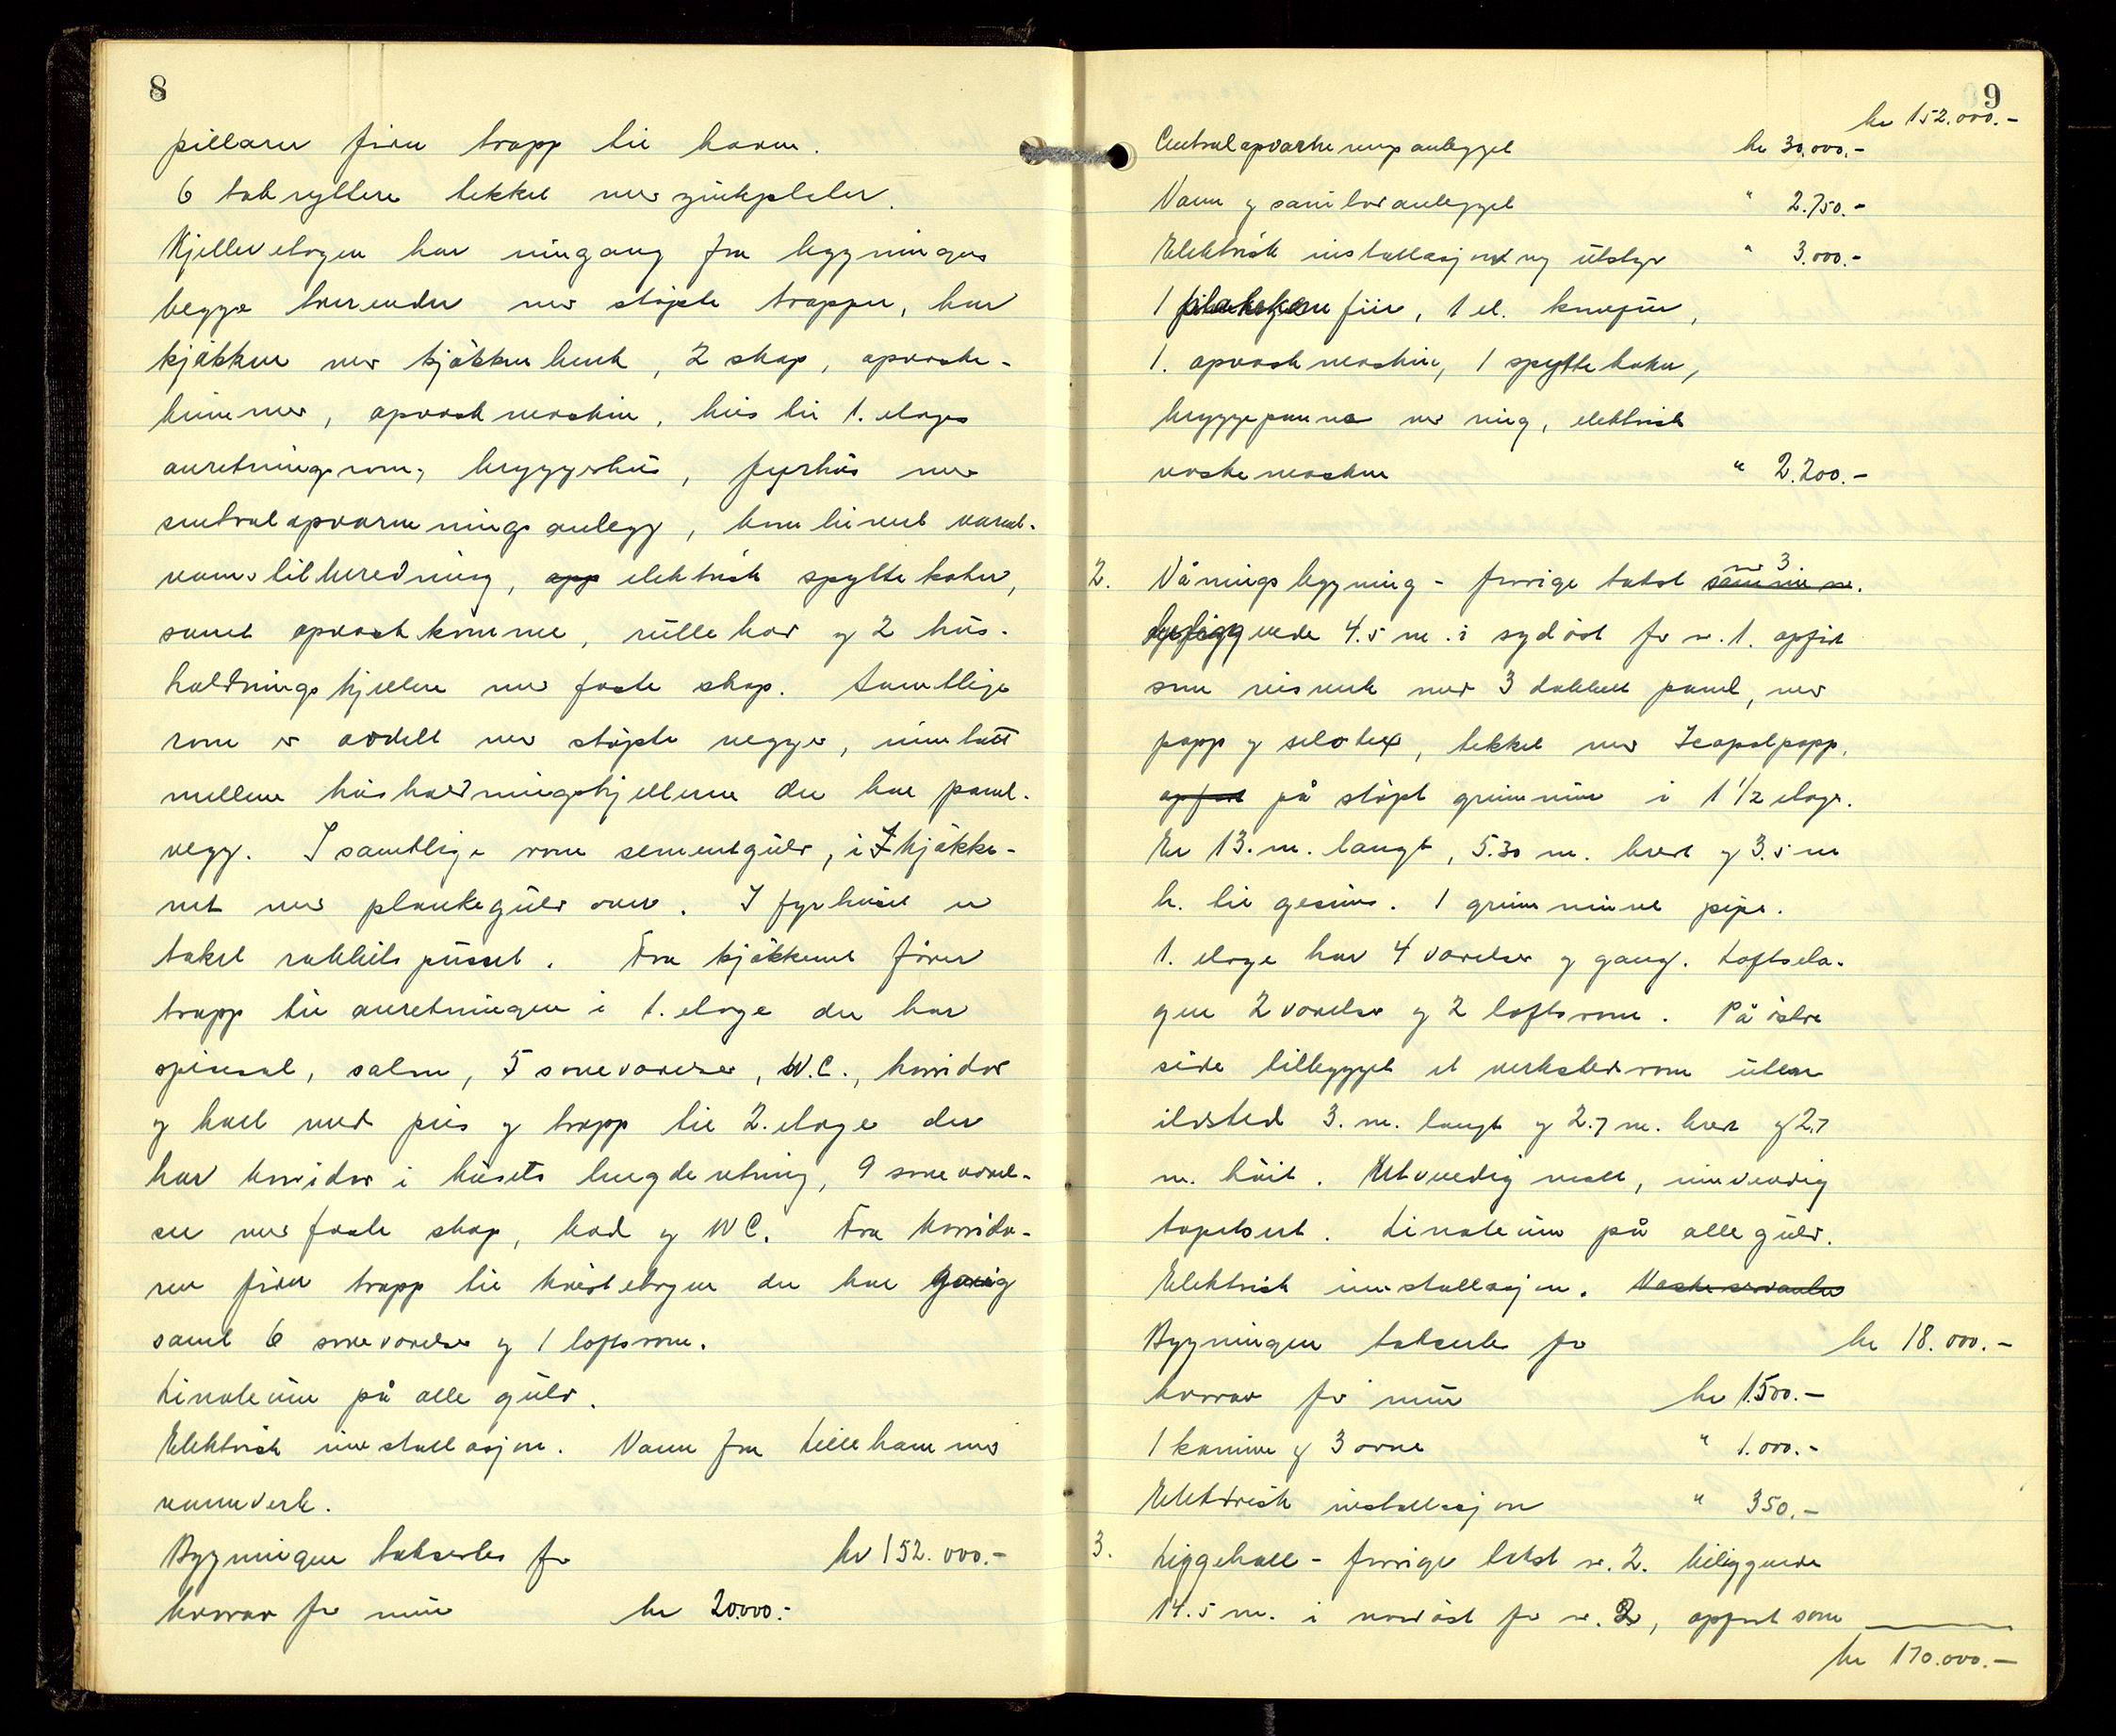 8
pillarer fører trapp til haven.
6 takryttere tekket med zinkplater.
Kjelleretagen har inngang fra bygningens
begge tverrender med støpte trapper, har
kjøkken med kjøkkenbenk, 2 skap, opvaske-
kummer, opvaskmaskin, heis til 1. etages
anretningsrom, bryggerhus, fyrhus med
sentralopvarmningsanlegg, kombinert varmt-
vannstilberedning, opp elektrisk spyttekoker,
samt opvaskkumme, rullebod og 2 hus-
holdningskjellere med faste skap. Samtlige
rom er avdelt med støpte vegger, inntatt
mellem husholdningskjellerne der har panel-
vegg. I samtlige rom sementgulv, i kjøkke-
net med plankegulv over. I fyrhuset er
taket rabbitspusset. Fra kjøkkenet fører
trapp til anretningen i 1. etage der har
spisesal, salon, 5 soveværelser, W.C., korridor
og hall med peis og trapp til 2. etage der
har korridor i husets lengderetning, 9 soveværel-
ser med faste skap, bad og WC. Fra korrido-
ren fører trapp til kvistetagen der har gang
samt 6 soveværelser og 1 loftsrom.
Linoleum på alle gulv.
Elektrisk installasjon. Vann fra Lillehammer
vannverk.
Bygningen takseres for kr 152.000.-
hvorav for mur kr 20.000.-
9
kr 152.000.-
Centralopvarmningsanlegget kr 30.000.-
Vann og sanitæranlegget " 2.750.-
Elektrisk installasjon og utstyr " 3.000.-
1 fir, 1 el. komfur,
1. opvaskmaskin, 1 spyttekoker,
bryggepanne med ring, elektrisk
vaskemaskin " 2.200.-
2. Våningsbygning - forrige takst nr 3.
beliggende 4.5 m. i sydøst for nr. 1. opført
som reisverk med 3 dobbelt panel, med
papp og selotex, tekket med Icopalpapp,
opført på støpt grunnmur i 1 1/2 etage.
Er 13. m. langt, 5.30 m. bredt og 3.5 m
h. til gesims. 1 grunnmuret pipe.
1. etage har 4 værelser og gang. Loftseta-
gen 2 værelser og 2 loftsrom. På østre
side tilbygget et verkstedrom uten
ildsted 3. m. langt og 2.7 m. bredt og 2.7
m. høit. Utvendig malt, innvendig
tapetsert. Linoleum på alle gulv.
Elektrisk installasjon. Vaskeservanter
Bygningen takseres for kr 18.000.-
hvorav for mur kr 1.500.-
1 kamin og 3 ovne " 1.000.-
Elektrisk installasjon " 350.-
3. Liggehall - forrige takst nr. 2. beliggende
14.5 m. i nordøst for nr. 2, opført som
kr 170.000.-